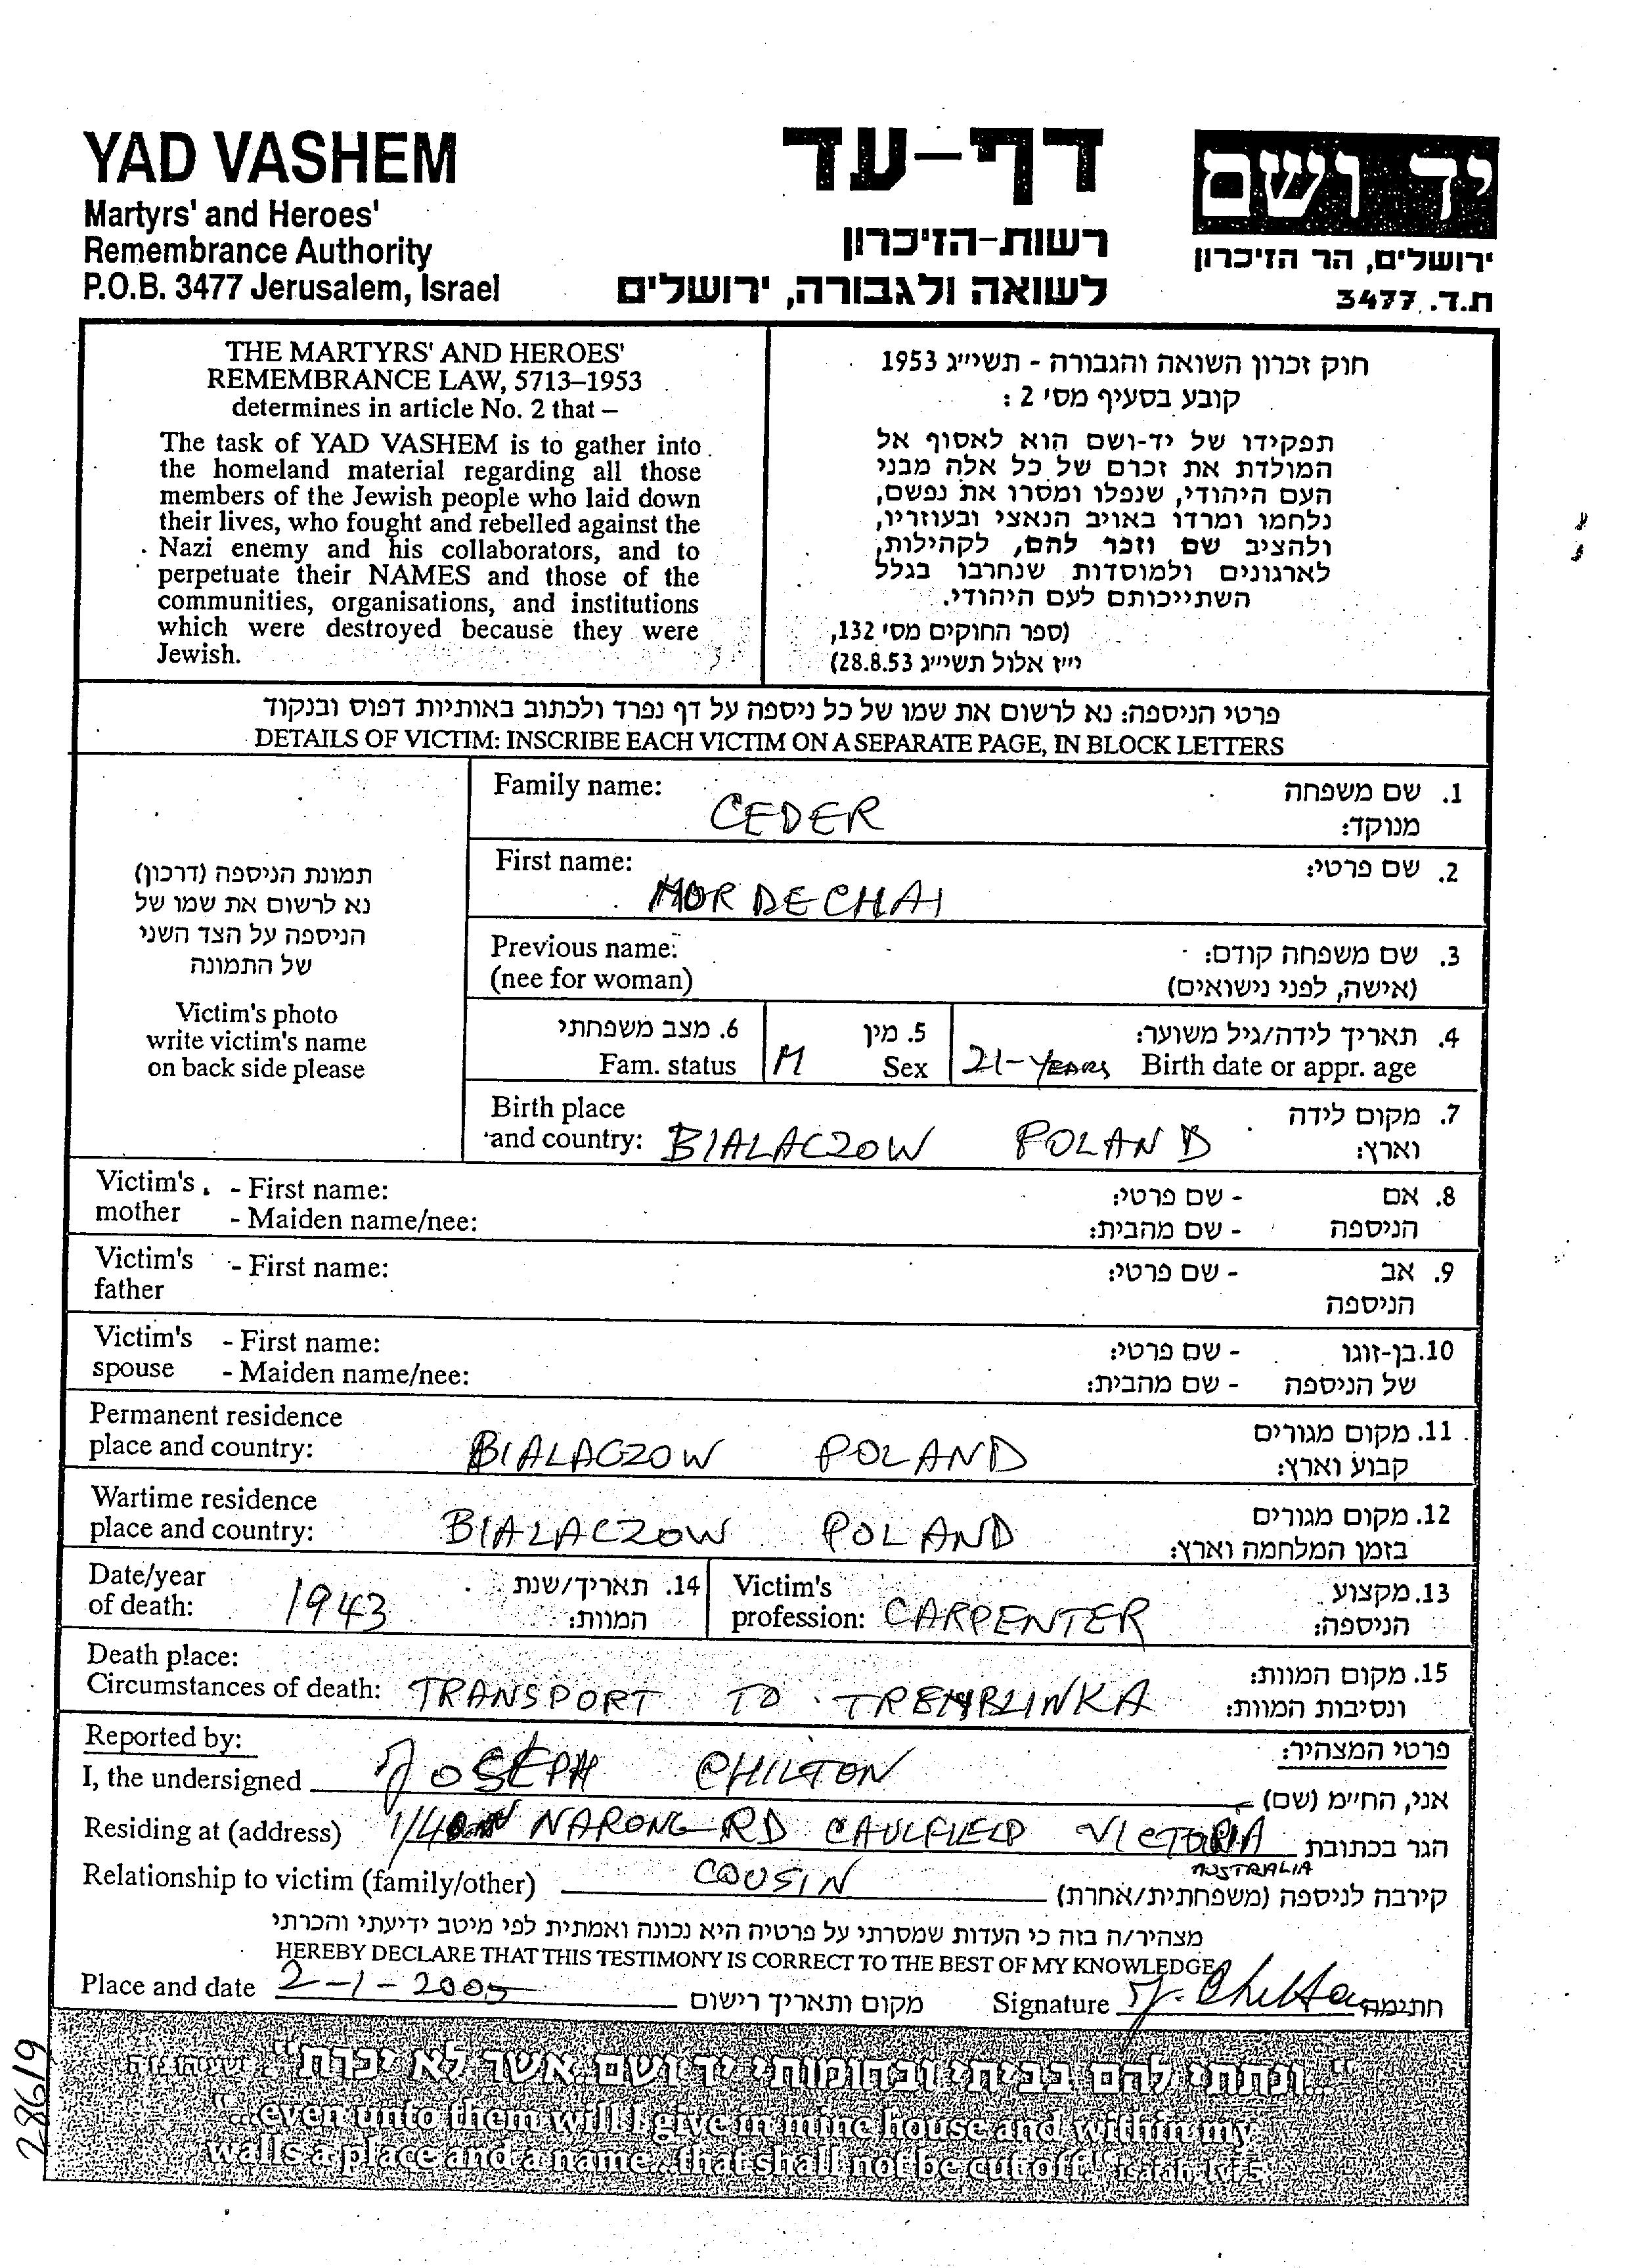 YAD VASHEM
Martyrs' and Heroes'
Remembrance Authority
P.O.B. 3477 Jerusalem, Israel
דף-עד
רשות-הזיכרון
לשואה ולגבורה, ירושלים
יד ושם
ירושלים, הר הזיכרון
ת.ד. 3477
THE MARTYRS' AND HEROES'
REMEMBRANCE LAW, 5713–1953
determines in article No. 2 that –
The task of YAD VASHEM is to gather into
the homeland material regarding all those
members of the Jewish people who laid down
their lives, who fought and rebelled against the
Nazi enemy and his collaborators, and to
perpetuate their NAMES and those of the
communities, organisations, and institutions
which were destroyed because they were
Jewish.
חוק זכרון השואה והגבורה - תשי״ג 1953
קובע בסעיף מס׳ 2 :
תפקידו של יד-ושם הוא לאסוף אל
המולדת את זכרם של כל אלה מבני
העם היהודי, שנפלו ומסרו את נפשם,
נלחמו ומרדו באויב הנאצי ובעוזריו,
ולהציב שם וזכר להם, לקהילות,
לארגונים ולמוסדות שנחרבו בגלל
השתייכותם לעם היהודי.
(ספר החוקים מס׳ 132,
י״ז אלול תשי״ג 28.8.53)
פרטי הניספה: נא לרשום את שמו של כל ניספה על דף נפרד ולכתוב באותיות דפוס ובנקוד
DETAILS OF VICTIM: INSCRIBE EACH VICTIM ON A SEPARATE PAGE, IN BLOCK LETTERS
תמונת הניספה (דרכון)
נא לרשום את שמו של
הניספה על הצד השני
של התמונה
Victim's photo
write victim's name
on back side please
Family name: CEDER 1. שם משפחה
מנוקד:
First name: MORDECHAI 2. שם פרטי:
Previous name: 3. שם משפחה קודם:
(nee for woman) (אישה, לפני נישואים)
6. מצב משפחתי 5. מין 4. תאריך לידה/גיל משוער:
Fam. status M Sex 21-YEARS Birth date or appr. age
Birth place 7. מקום לידה
and country: BIALACZOW POLAND וארץ:
Victim's - First name: - שם פרטי: 8. אם
mother - Maiden name/nee: - שם מהבית: הניספה
Victim's - First name: - שם פרטי: 9. אב
father הניספה
Victim's - First name: - שם פרטי: 10. בן-זוגו
spouse - Maiden name/nee: - שם מהבית: של הניספה
Permanent residence 11. מקום מגורים
place and country: BIALACZOW POLAND קבוע וארץ:
Wartime residence 12. מקום מגורים
place and country: BIALACZOW POLAND בזמן המלחמה וארץ:
Date/year 14. תאריך/שנת Victim's 13. מקצוע
of death: 1943 המוות: profession: CARPENTER הניספה:
Death place: 15. מקום המוות:
Circumstances of death: TRANSPORT TO TREMBLINKA ונסיבות המוות:
Reported by: פרטי המצהיר:
I, the undersigned JOSEPH CHILTON אני, החי״מ (שם)
Residing at (address) NARONG RD CAULFIELD VICTORIA הגר בכתובת
AUSTRALIA
Relationship to victim (family/other) COUSIN קירבה לניספה (משפחתית/אחרת)
מצהיר/ה בזה כי העדות שמסרתי על פרטיה היא נכונה ואמתית לפי מיטב ידיעתי והכרתי
HEREBY DECLARE THAT THIS TESTIMONY IS CORRECT TO THE BEST OF MY KNOWLEDGE
Place and date 2-1-2005 מקום ותאריך רישום Signature J. Chilton חתימה
"...ונתתי להם בביתי ובחומותי יד ושם...אשר לא יכרת"
"...even unto them will I give in mine house and within my
walls a place and a name...that shall not be cut off." Isaiah, lvi, 5
28619